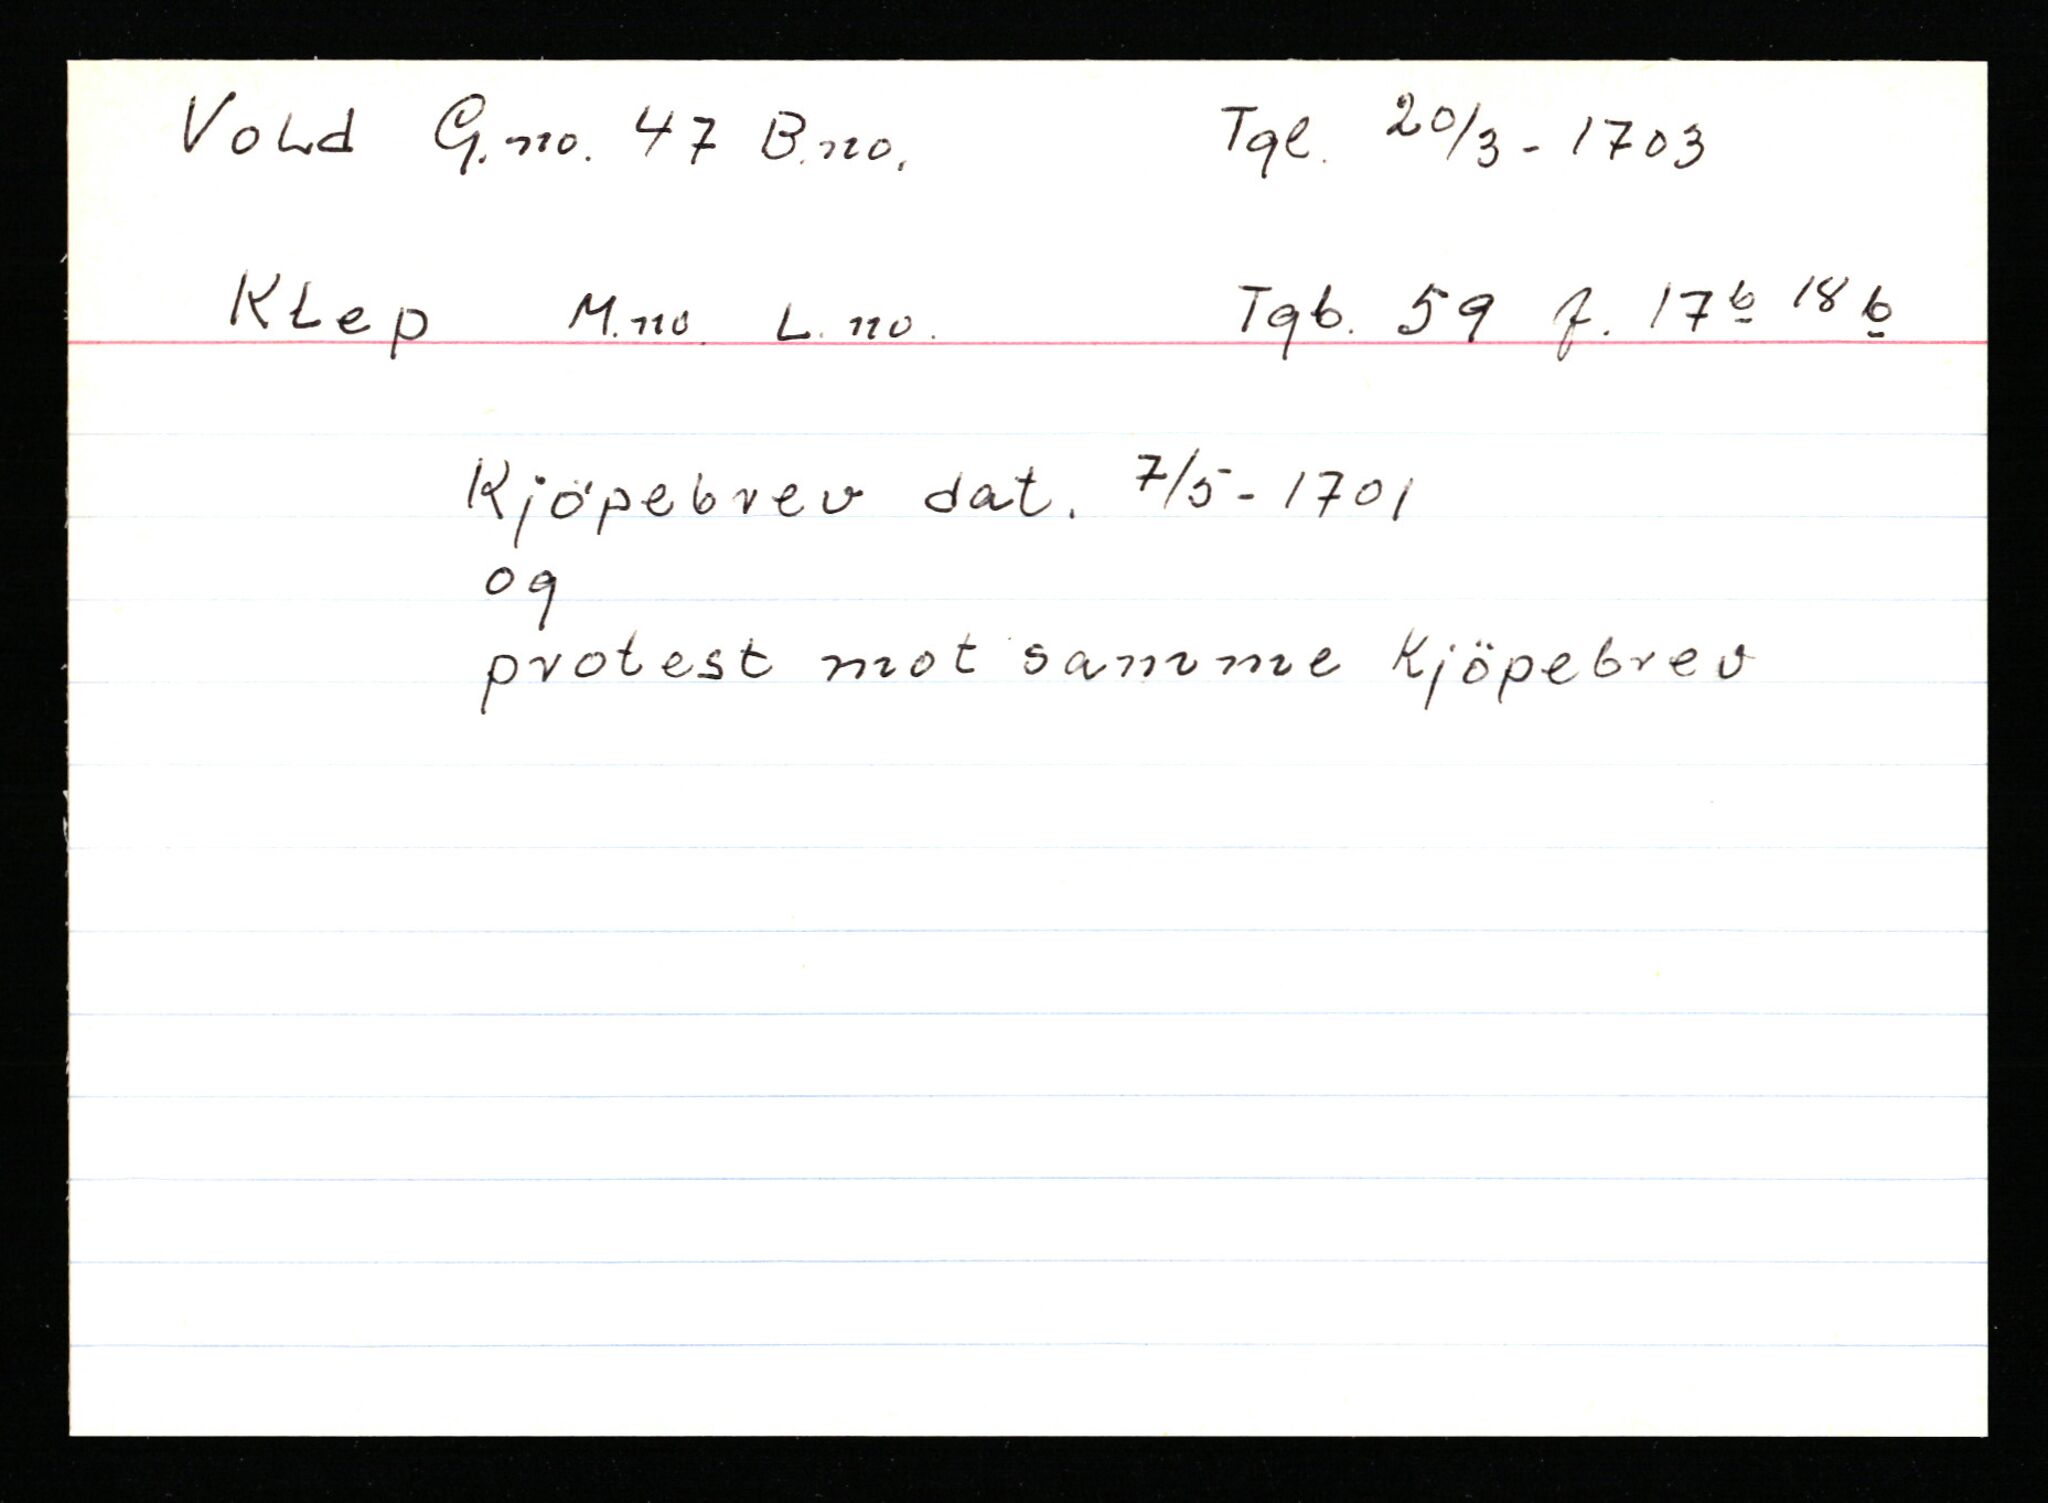 Vold G.no. 47 B.no. Tgl. 20/3-1703
Klep M.no. L.no. Tgb. 59 f. 17b 18b
Kjöpebrev dat. 7/5-1701
og
protest mot samme Kjöpebrev